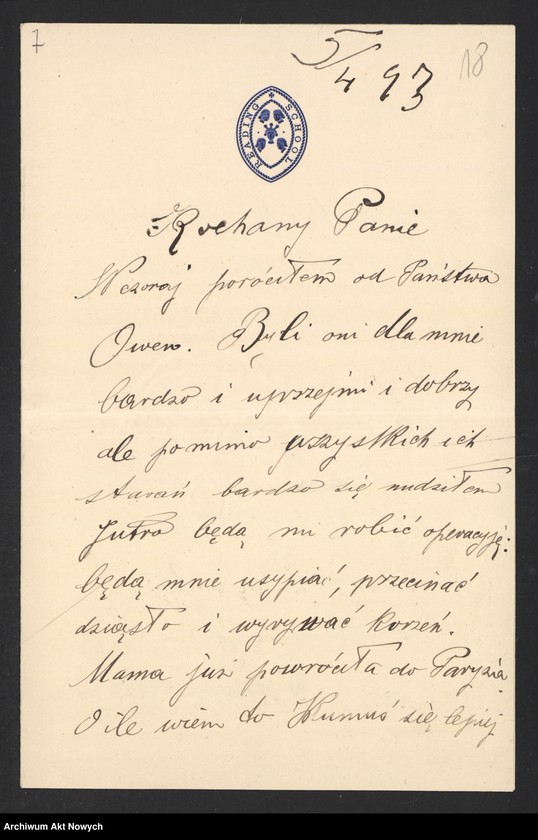 7
5/4 93
18
READING SCHOOL
Kochany Panie
Wczoraj poróciłem od Państwa
Owen. Byli oni dla mnie
bardzo i uprzejmi i dobrzy
ale pomimo wszystkich ich
starań bardzo się nudziłem
Jutro będą mi robić operacyję:
będą mnie usypiać, przecinać
dziąsło i wyrywać korzeń.
Mama już powróciła do Paryża.
O ile wiem to się lepiej
Archiwum Akt Nowych